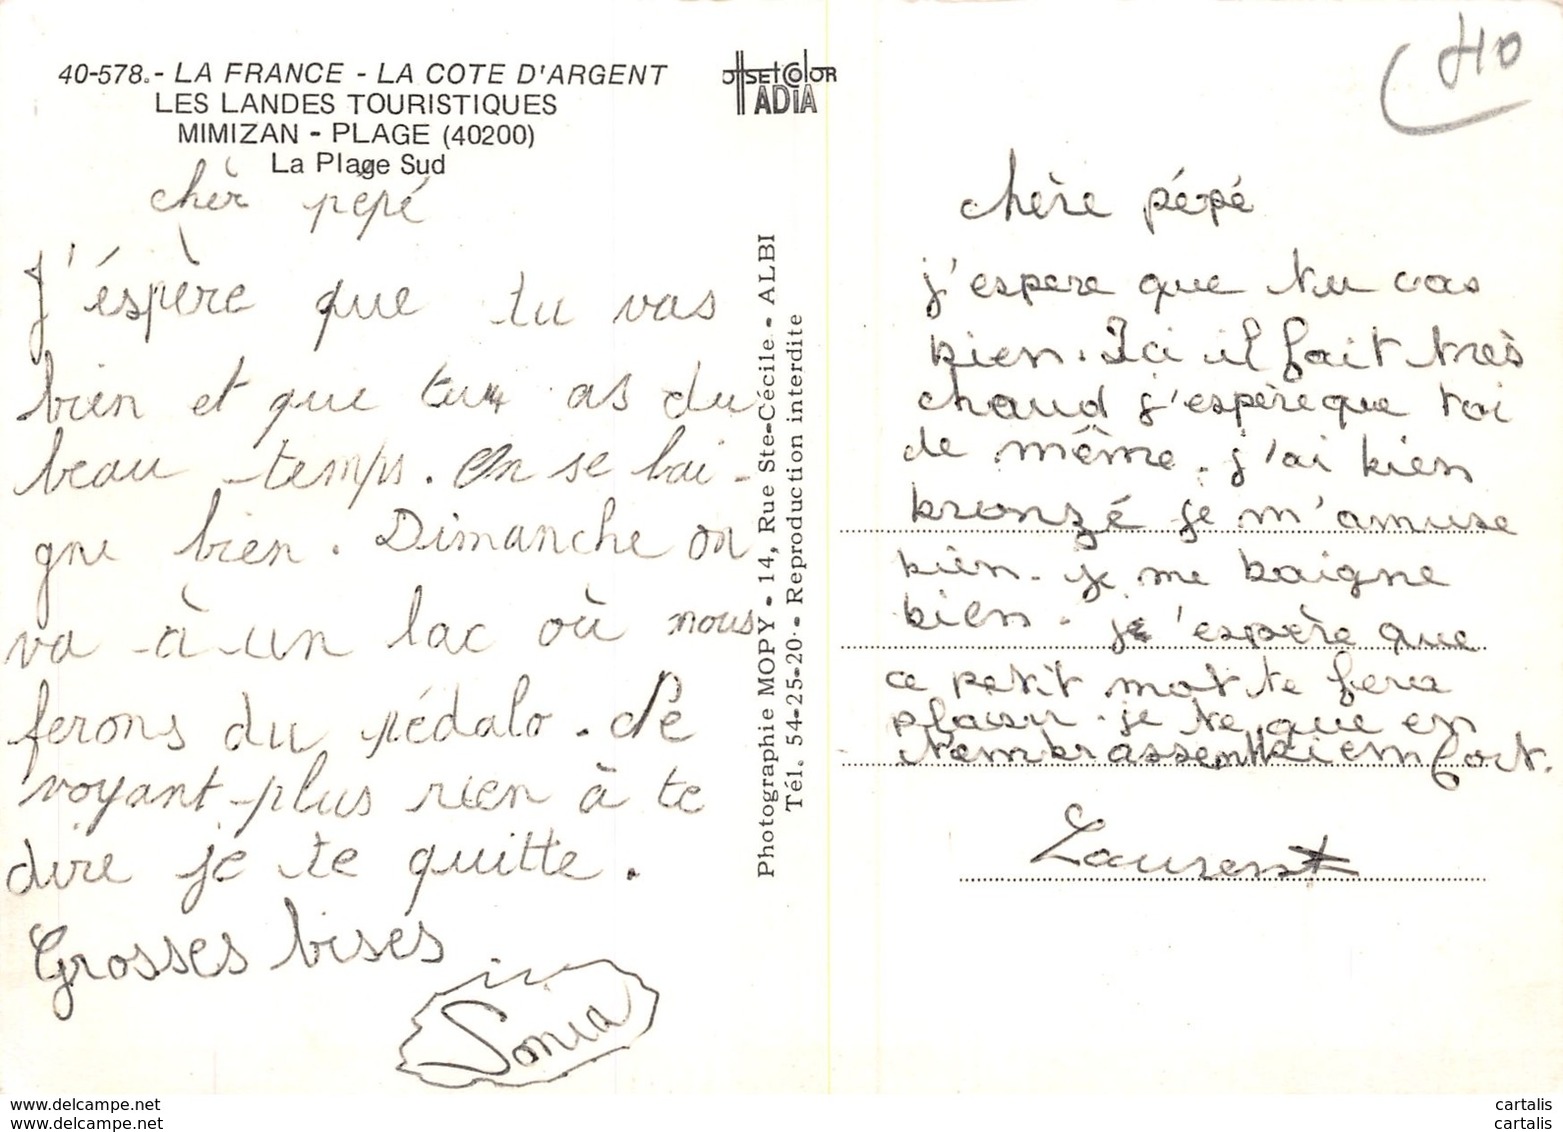 40-578.- LA FRANCE - LA COTE D'ARGENT
LES LANDES TOURISTIQUES
MIMIZAN - PLAGE (40200)
La Plage Sud
OffSEt COlOR
ADIA
chèr pépé
J'éspère que tu vas
bien et que tu as du
beau temps. On se bai-
gne bien. Dimanche on
va à un lac où nous
ferons du pédalo. Ne
voyant plus rien à te
dire je te quitte.
Grosses bises
Sonia
Photographie MOPY - 14, Rue Ste-Cécile - ALBI
Tél. 54-25-20 - Reproduction interdite
40
chère pépé
j'espere que tu vas
bien. Ici il fait très
chaud j'espère que toi
de même. j'ai bien
bronzé je m'amuse
bien. je me baigne
bien. j'espère que
ce petit mot te fera
plaisir. je te que en
t'embrassent bien fort.
Laurent
www.delcampe.net
www.delcampe.net
cartalis
cartalis